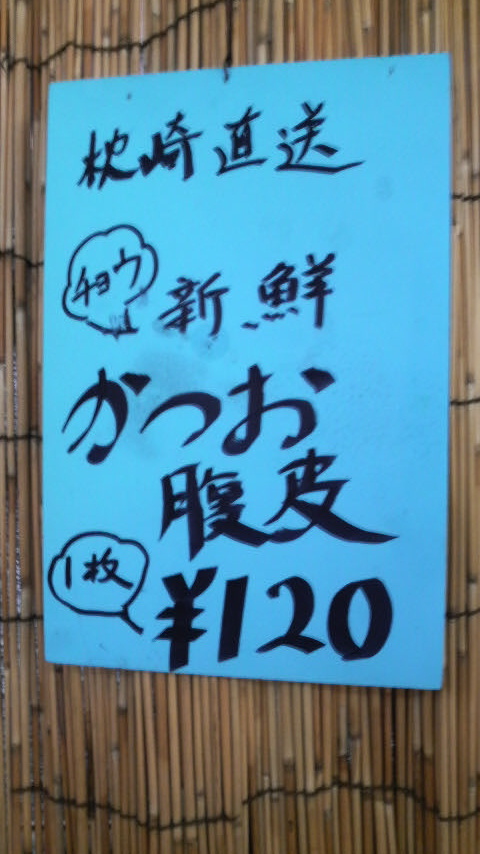 枕崎直送
チョウ
新鮮
かつお
腹皮
1枚
¥120